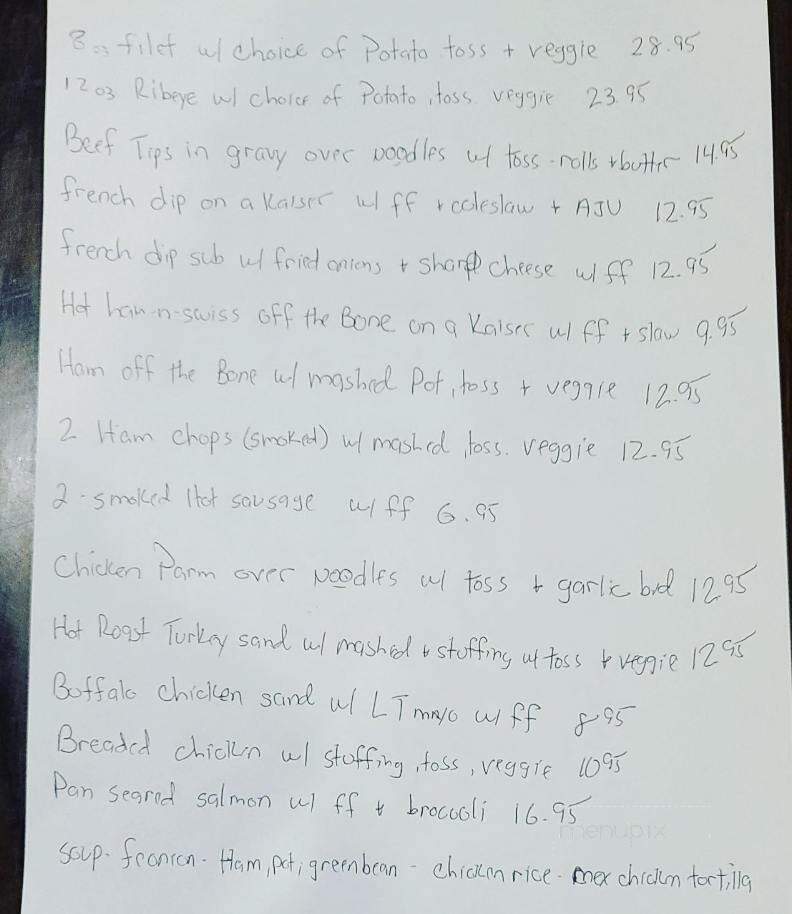 8oz filet w/ choice of Potato toss + veggie 28.95
12oz Ribeye w/ choice of Potato, toss. veggie 23.95
Beef Tips in gravy over noodles w/ toss - rolls + butter 14.95
french dip on a Kaiser w/ ff + coleslaw + AJU 12.95
french dip sub w/ fried onions + sharp cheese w/ ff 12.95
Hot ham-n-swiss off the Bone on a Kaiser w/ ff + slaw 9.95
Ham off the Bone w/ mashed Pot, toss + veggie 12.95
2 Ham chops (smoked) w/ mashed, toss. veggie 12.95
2 - smoked Hot sausage w/ ff 6.95
Chicken Parm over noodles w/ toss + garlic brd 12.95
Hot Roast Turkey sand w/ mashed + stuffing w/ toss + veggie 12.95
Buffalo chicken sand w/ LT mayo w/ ff 8.95
Breaded chicken w/ stuffing, toss, veggie 10.95
Pan seared salmon w/ ff + broccoli 16.95
menupix
soup - fronion - Ham, pot, greenbean - chicken rice - mex chicken tortilla